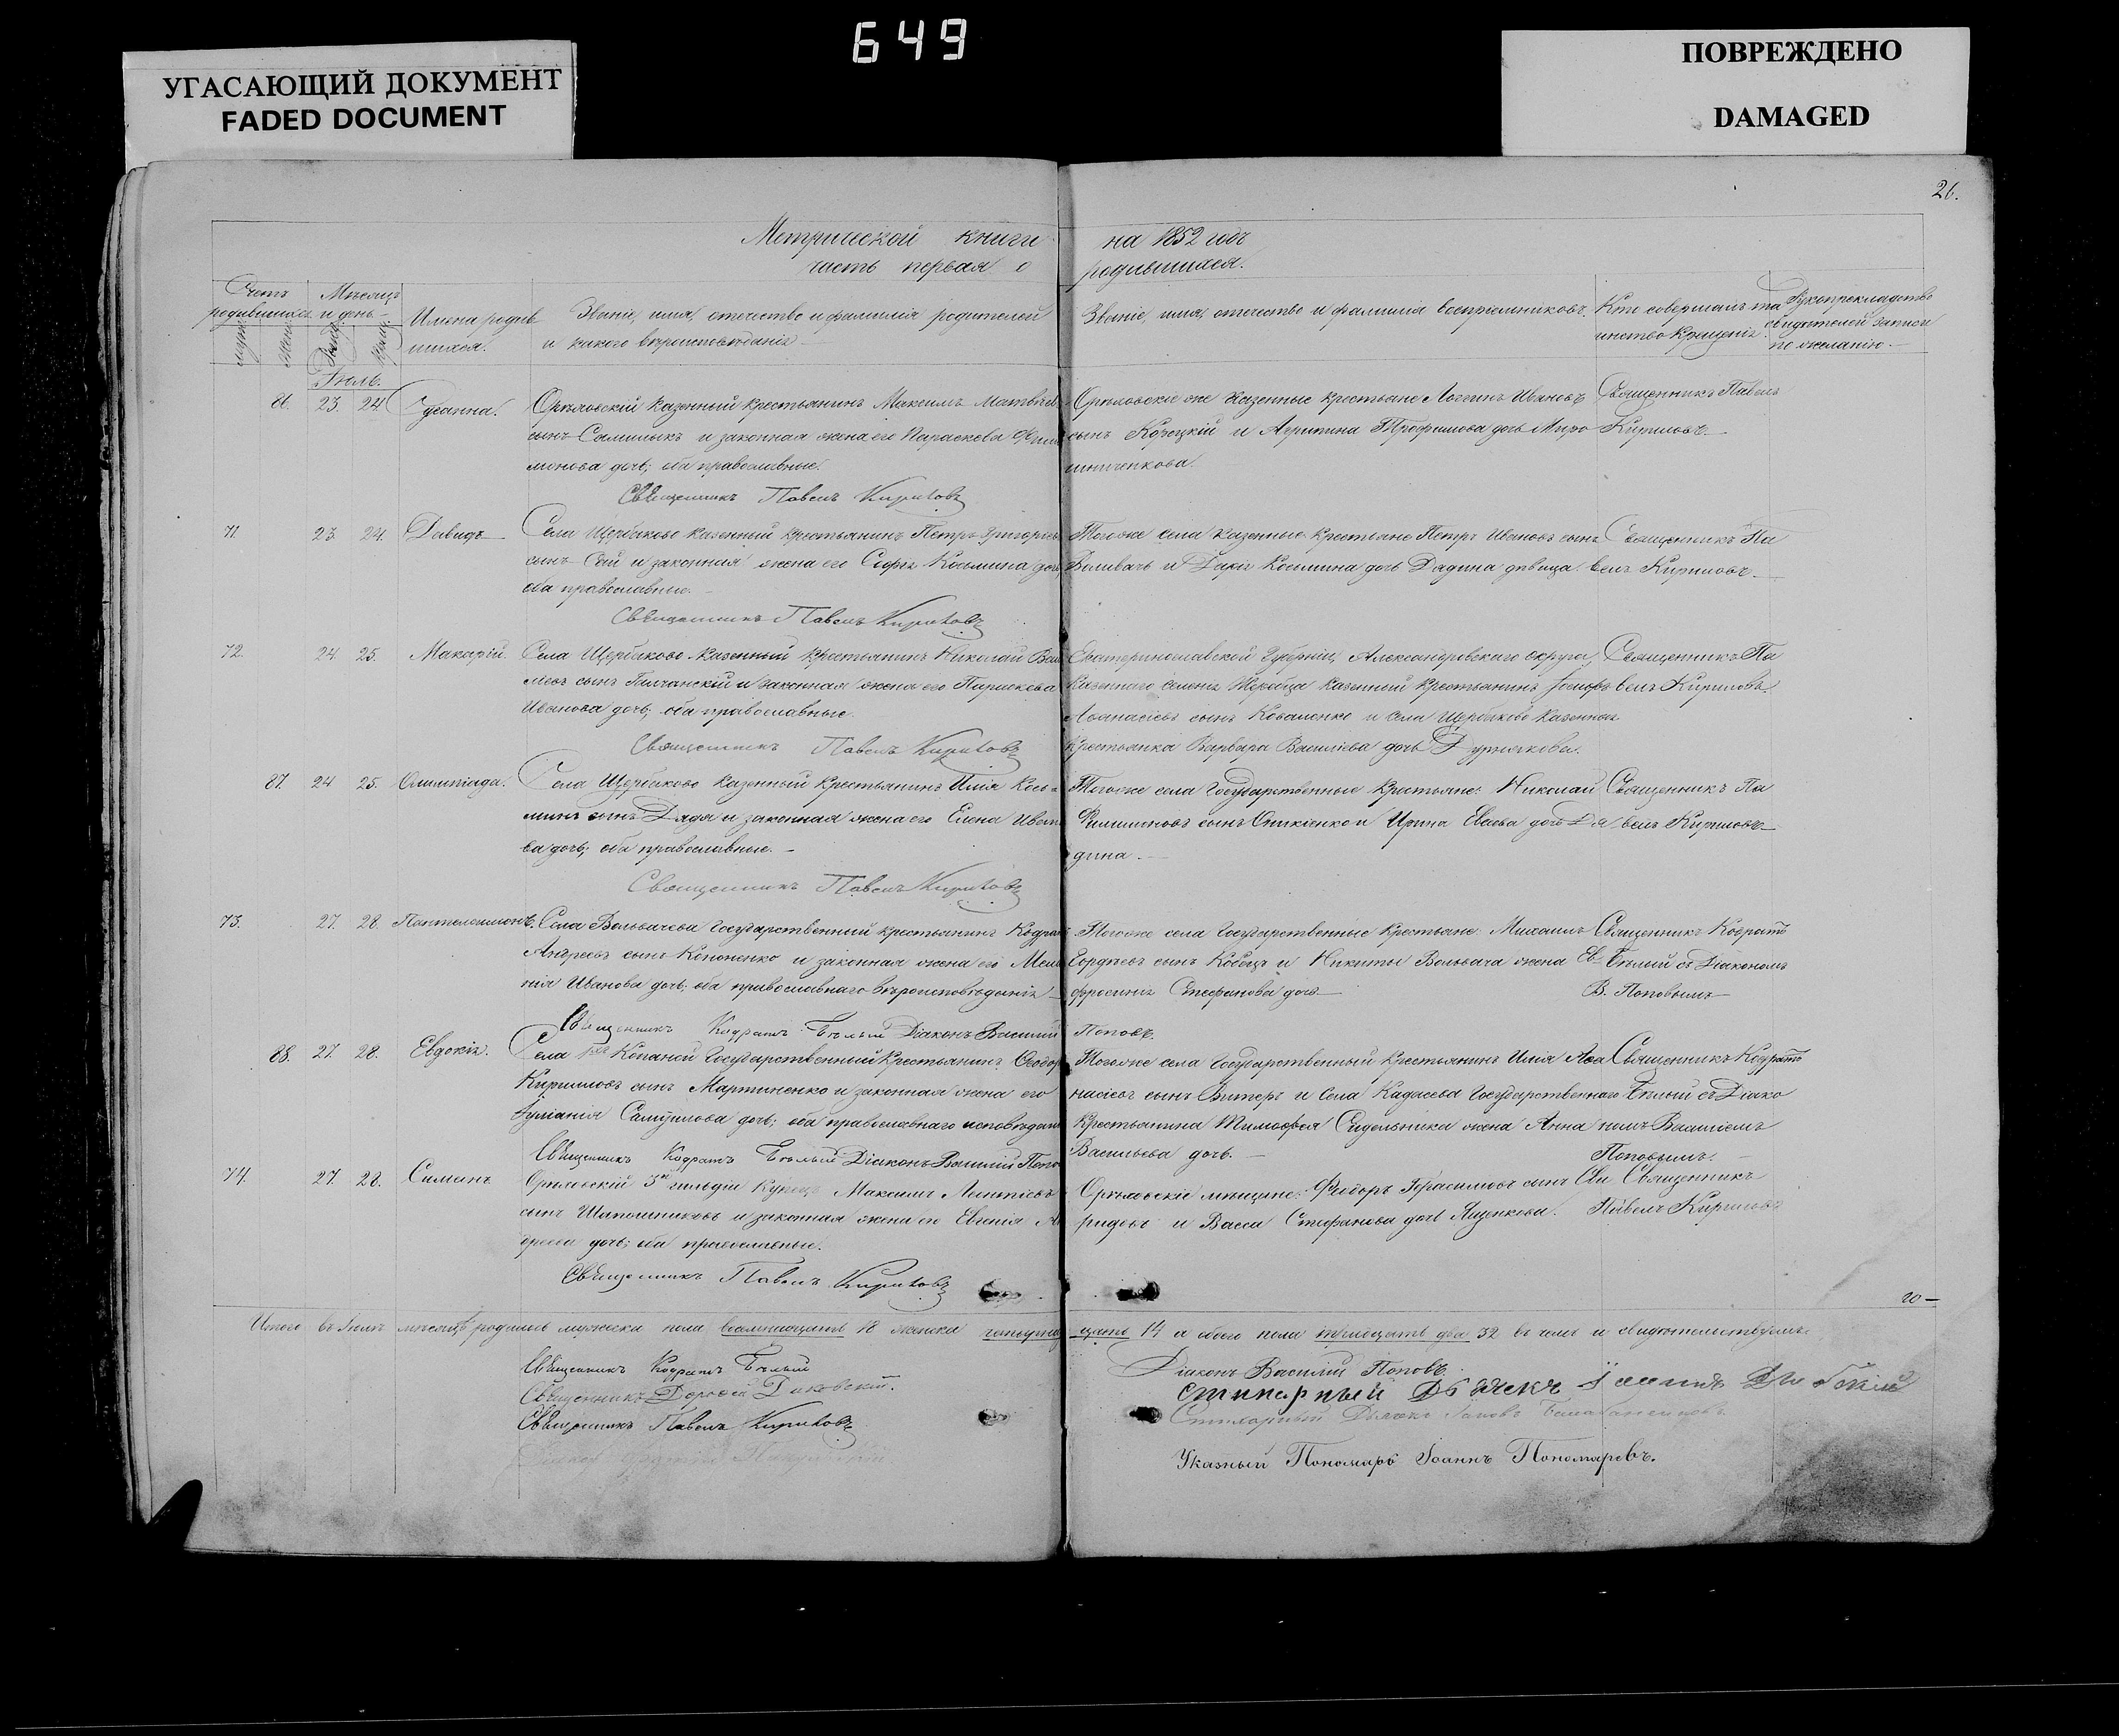 649
УГАСАЮЩИЙ ДОКУМЕНТ
FADED DOCUMENT
ПОВРЕЖДЕНО
DAMAGED
26.
Метрической книги на 1852 годъ
часть первая о родившихся.
Счетъ родившихся
муж.
жен.
Мѣсяцъ и день
Имена родившихся.
Званіе, имя, отечество и фамилія родителей
и какого вѣроисповѣданія
Званіе, имя, отечество и фамилія воспріемниковъ.
Кто совершалъ таинство крещенія.
Рукоприкладство
свидетелей записи
по желанію.
Іюль.
86. 23. 24. Сусанна.
Орѣховскій казенный крестьянинъ Максимъ Матвѣевъ
сынъ и законная жена его Параскева
дочь; оба православные.
Священникъ Павелъ Кириловъ
Орѣховскіе же казенные крестьяне Логгинъ Ивановъ
сынъ Корецкій и Агрипина Трофимова дочь Миро
шниченкова.
Священникъ Павелъ
Кириловъ.
71. 23. 24. Давидъ
Села Щербаково казенный крестьянинъ Петръ Григорьевъ
сынъ и законная жена его Софія Косьмина дочь
оба православные.
Священникъ Павелъ Кириловъ
Тогоже села казенные крестьяне Петръ Ивановъ сынъ
Воливачъ и Дарія Косьмина дочь Дядина дѣвица.
Священникъ Па
велъ Кириловъ.
72. 24. 25. Макарій.
Села Щербаково казенный крестьянинъ Николай
сынъ и законная жена его Параскева
Иванова дочь; оба православные.
Священникъ Павелъ Кириловъ
Екатеринославской Губерніи, Александровскаго округа,
казеннаго селенія Жеребца казенный крестьянинъ Іосифъ
Афанасіевъ сынъ Коваленко и села Щербаково казенная
крестьянка Варвара Василіева дочь
Священникъ Па
велъ Кириловъ.
87. 24 25. Олимпіада.
Села Щербаково казенный крестьянинъ Илія Кось
минъ сынъ Дядя и законная жена его Елена Ивано
ва дочь; оба православные.
Священникъ Павелъ Кириловъ
Тогоже села Государственные крестьяне: Николай
Филимоновъ сынъ и Ирина дочь Дя
дина.
Священникъ Па
велъ Кириловъ
73. 27. 28. Пантелеимонъ.
Села Вольвачева Государственный крестьянинъ Кодратъ
Андреевъ сынъ Кононенко и законная жена его Мела
нія Иванова дочь; оба православнаго вѣроисповѣданія
Священникъ Кодратъ Бѣлый Діаконъ Василій Поповъ.
Тогоже села Государственные крестьяне: Михаилъ
Гордѣевъ сынъ Кобецъ и Никиты Вольвача жена Ев
фросинія Стефанова дочь
Священникъ Кодратъ
Бѣлий съ Діакономъ
В. Поповымъ
88. 27. 28. Евдокія.
Села Копаней Государственный крестьянинъ Ѳеодоръ
Кириловъ сынъ Мартыненко и законная жена его
Іуліанія Самуилова дочь; оба православнаго исповѣданія
Священникъ Кодратъ Бѣлый Діаконъ Василій Поповъ
Тогоже села Государственный крестьянинъ Илія Афа
насіевъ сынъ и Села Государственнаго
крестьянина Тимофея Сидельника жена Анна
Васильева дочь.
Священникъ Кодратъ
Бѣлый съ Діако
номъ Василіемъ
Поповымъ.
74. 27. 28. Симеонъ
Орѣховскій 3й гильдіи купецъ Максимъ Леонтіевъ
сынъ Шапошниковъ и законная жена его Евгенія
дочь; оба православные.
Священникъ Павелъ Кириловъ
Орѣховскіе мѣщане: Феодоръ Герасимовъ сынъ Сви
ридовъ и Васса Стефанова дочь Яценкова.
Священникъ
Павелъ Кириловъ
Итого въ Іюлѣ мѣсяцѣ родилось мужеска пола восемнадцать 18 женска четырнадцать 14 а обоего пола тридцать два 32 въ чемъ и свидѣтельствуемъ.
Священникъ Кодратъ Бѣлый
Священникъ
Священникъ Павелъ Кириловъ
Діаконъ Василій Поповъ.
Стихарный Дьячекъ
Стихарный Дьячекъ
Указный Пономарь Іоаннъ Пономаревъ.